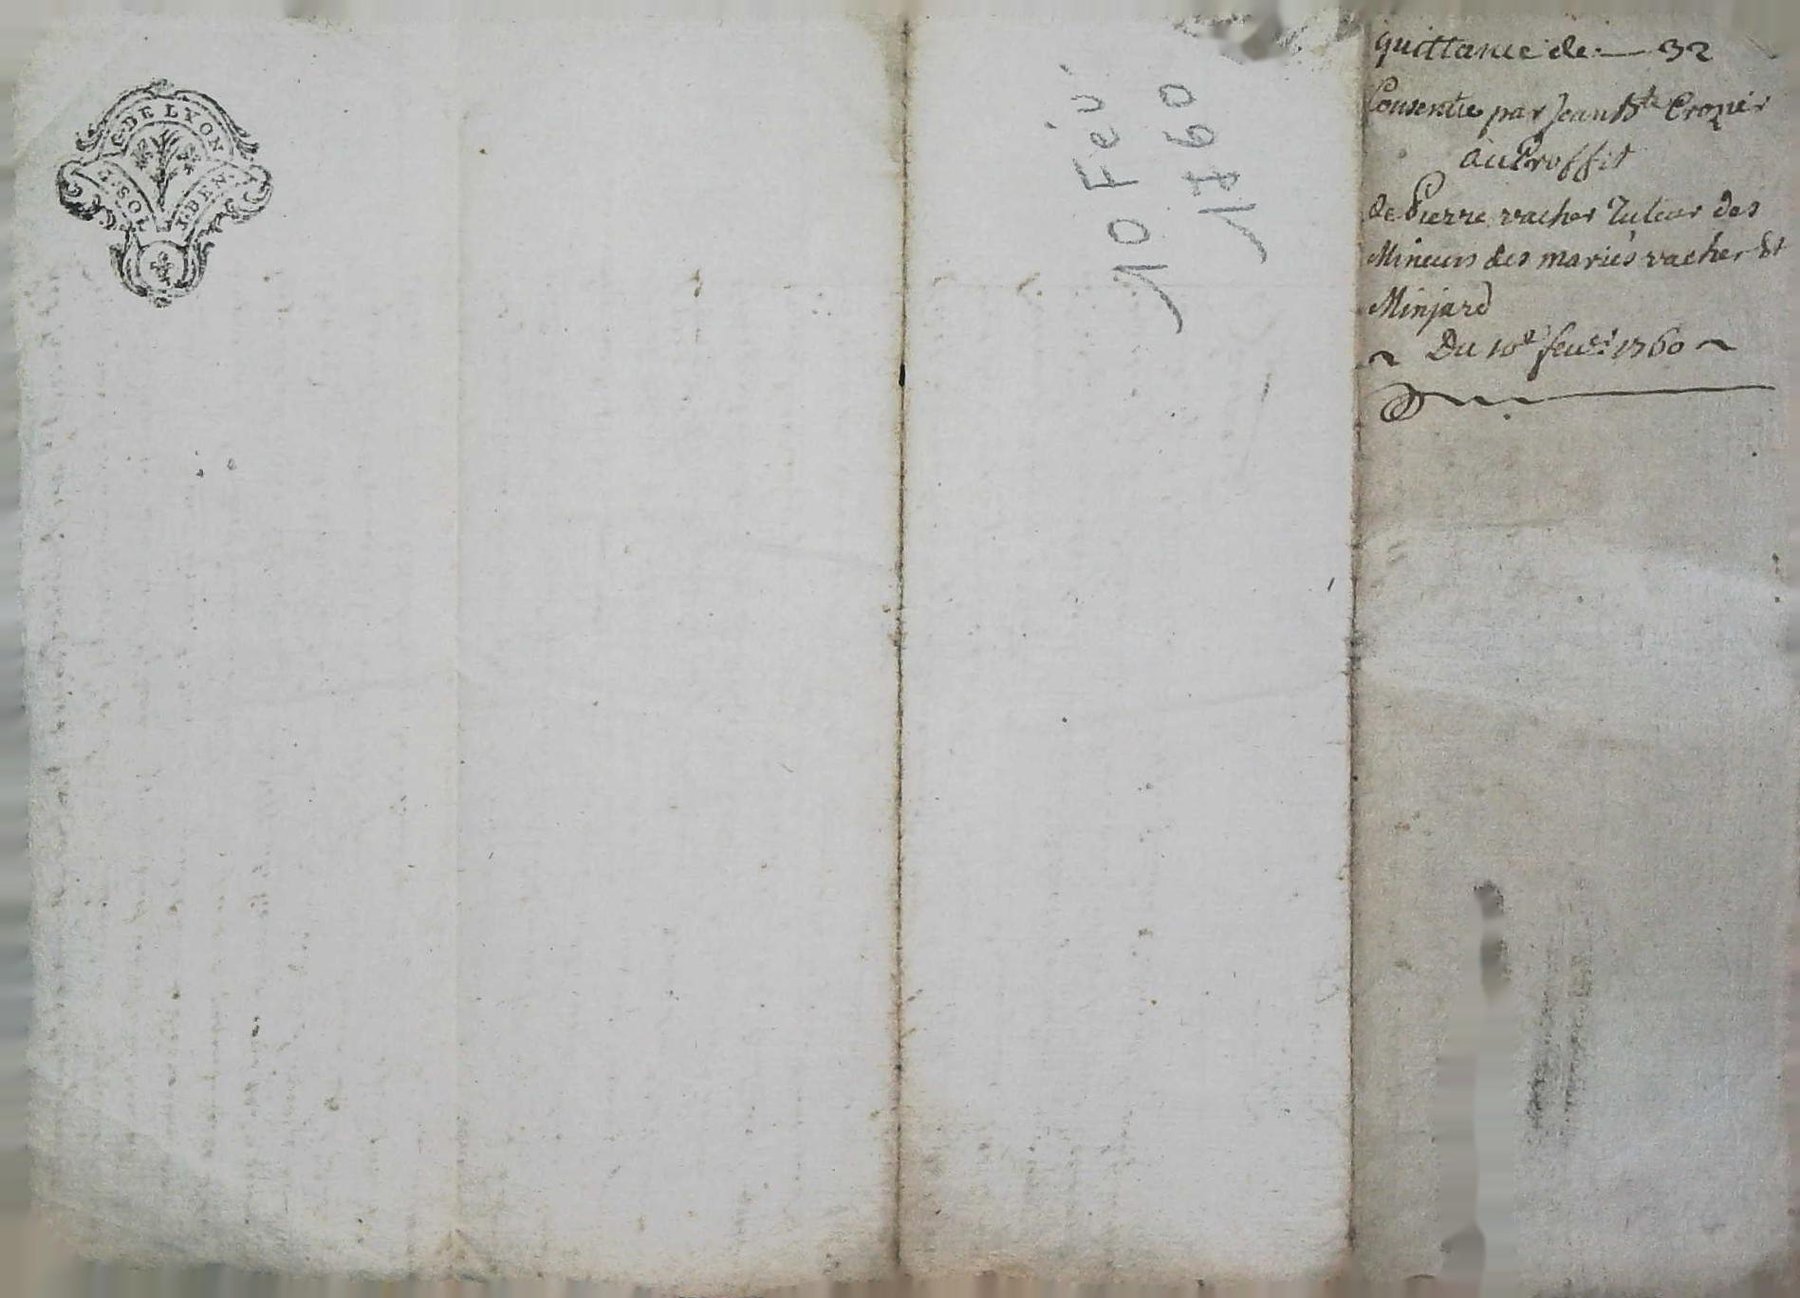 G. DE LYON
2. SOL. 1. DEN.
10 Fév.
1760
quittance de — 32
Consentie par Jean Bte Crozier
au Proffit
de Pierre vacher Tuteur des
Mineurs des mariés vacher et
Minjard
~ Du 10e feuer 1760 ~